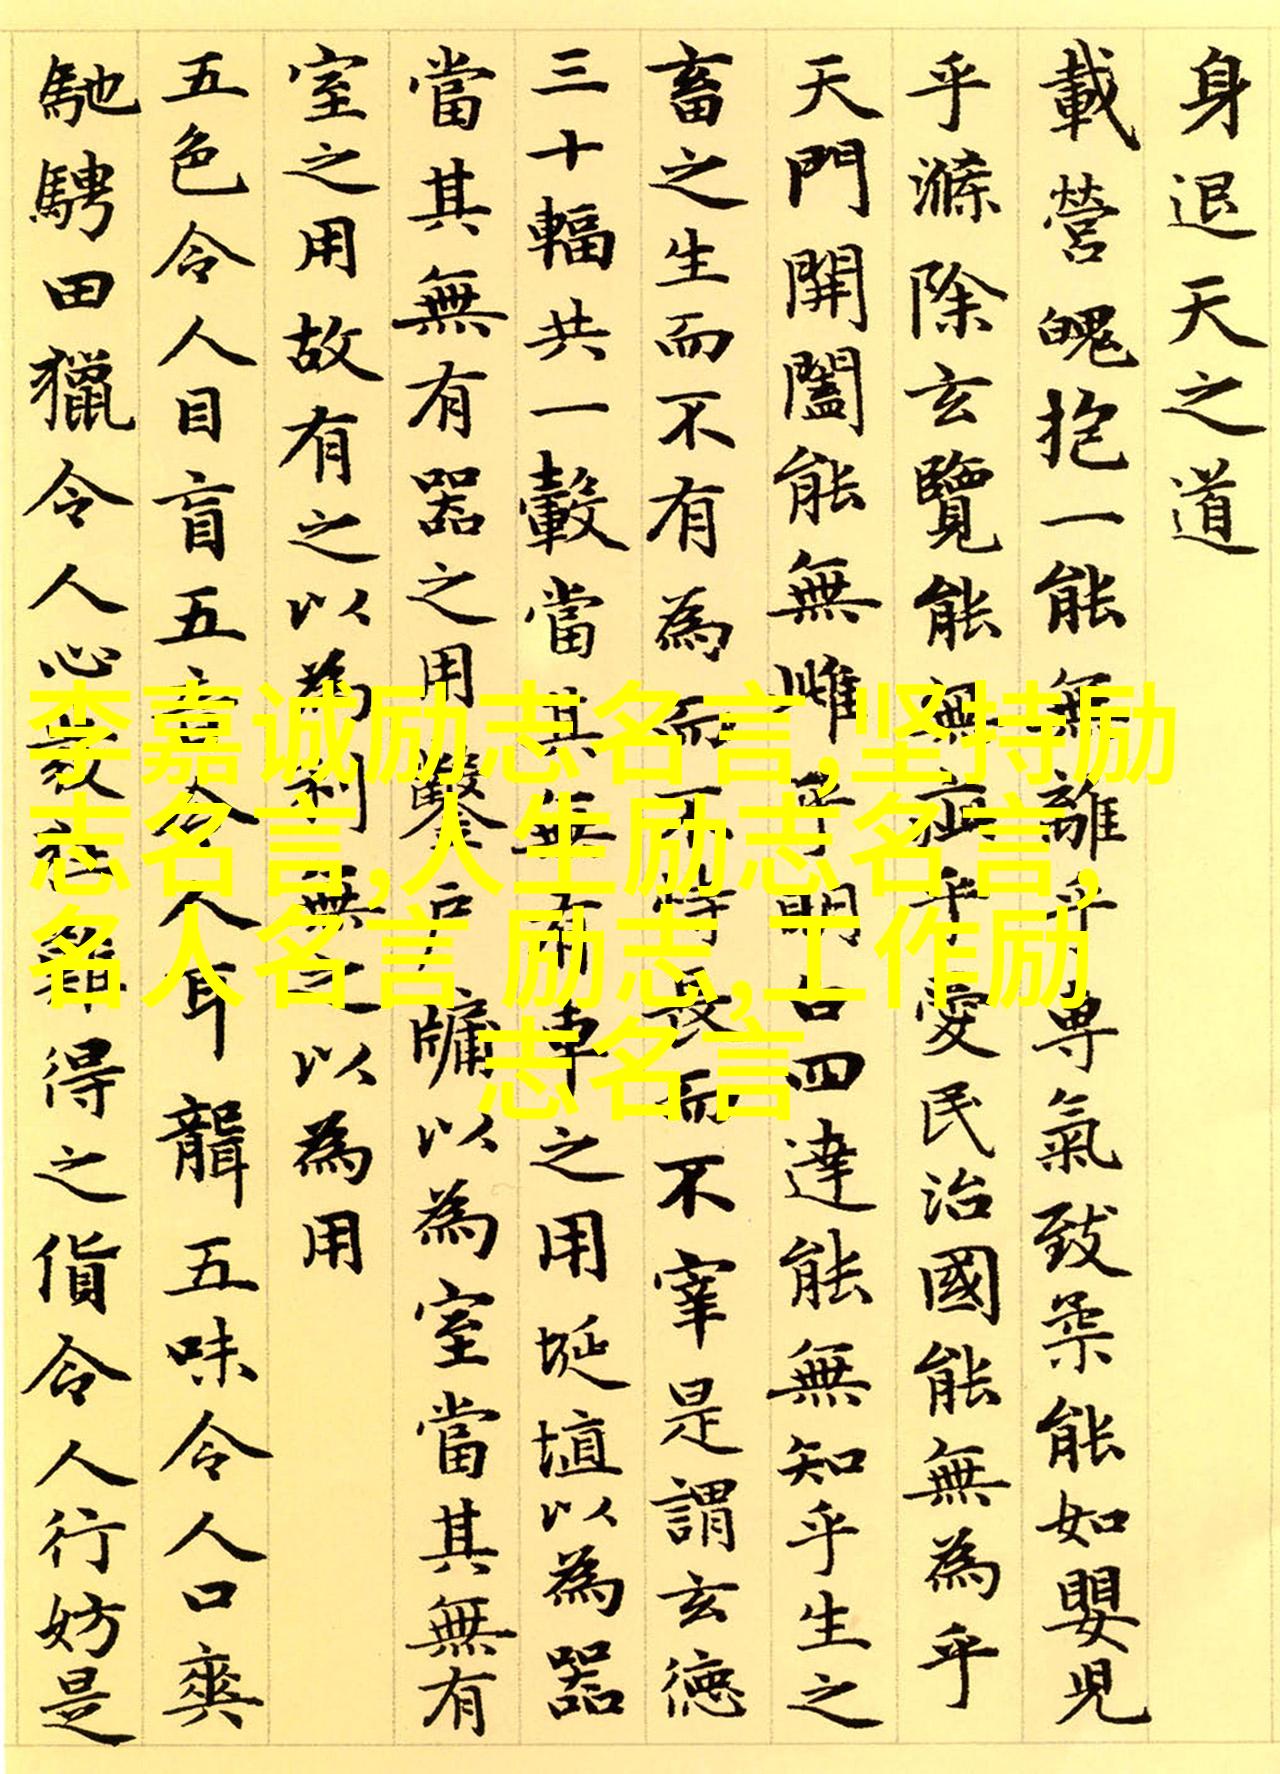 身退天之道
載營魄抱一能無離乎專氣致柔能如嬰兒
乎滌除玄覽能無疵乎愛民治國能無為乎
天門開闔能無雌乎明白四達能無知乎生之
畜之生而不有為而不恃長而不宰是謂玄德
三十輻共一轂當其無有車之用埏埴以為器
當其無有器之用鑿戶牖以為室當其無有
室之用故有之以為利無之以為用
五色令人目盲五音令人耳聾五味令人口爽
馳騁田獵令人心發狂難得之貨令人行妨是
李嘉诚励志名言,坚持励
志名言,人生励志名言,
名人名言 励志,工作励
志名言